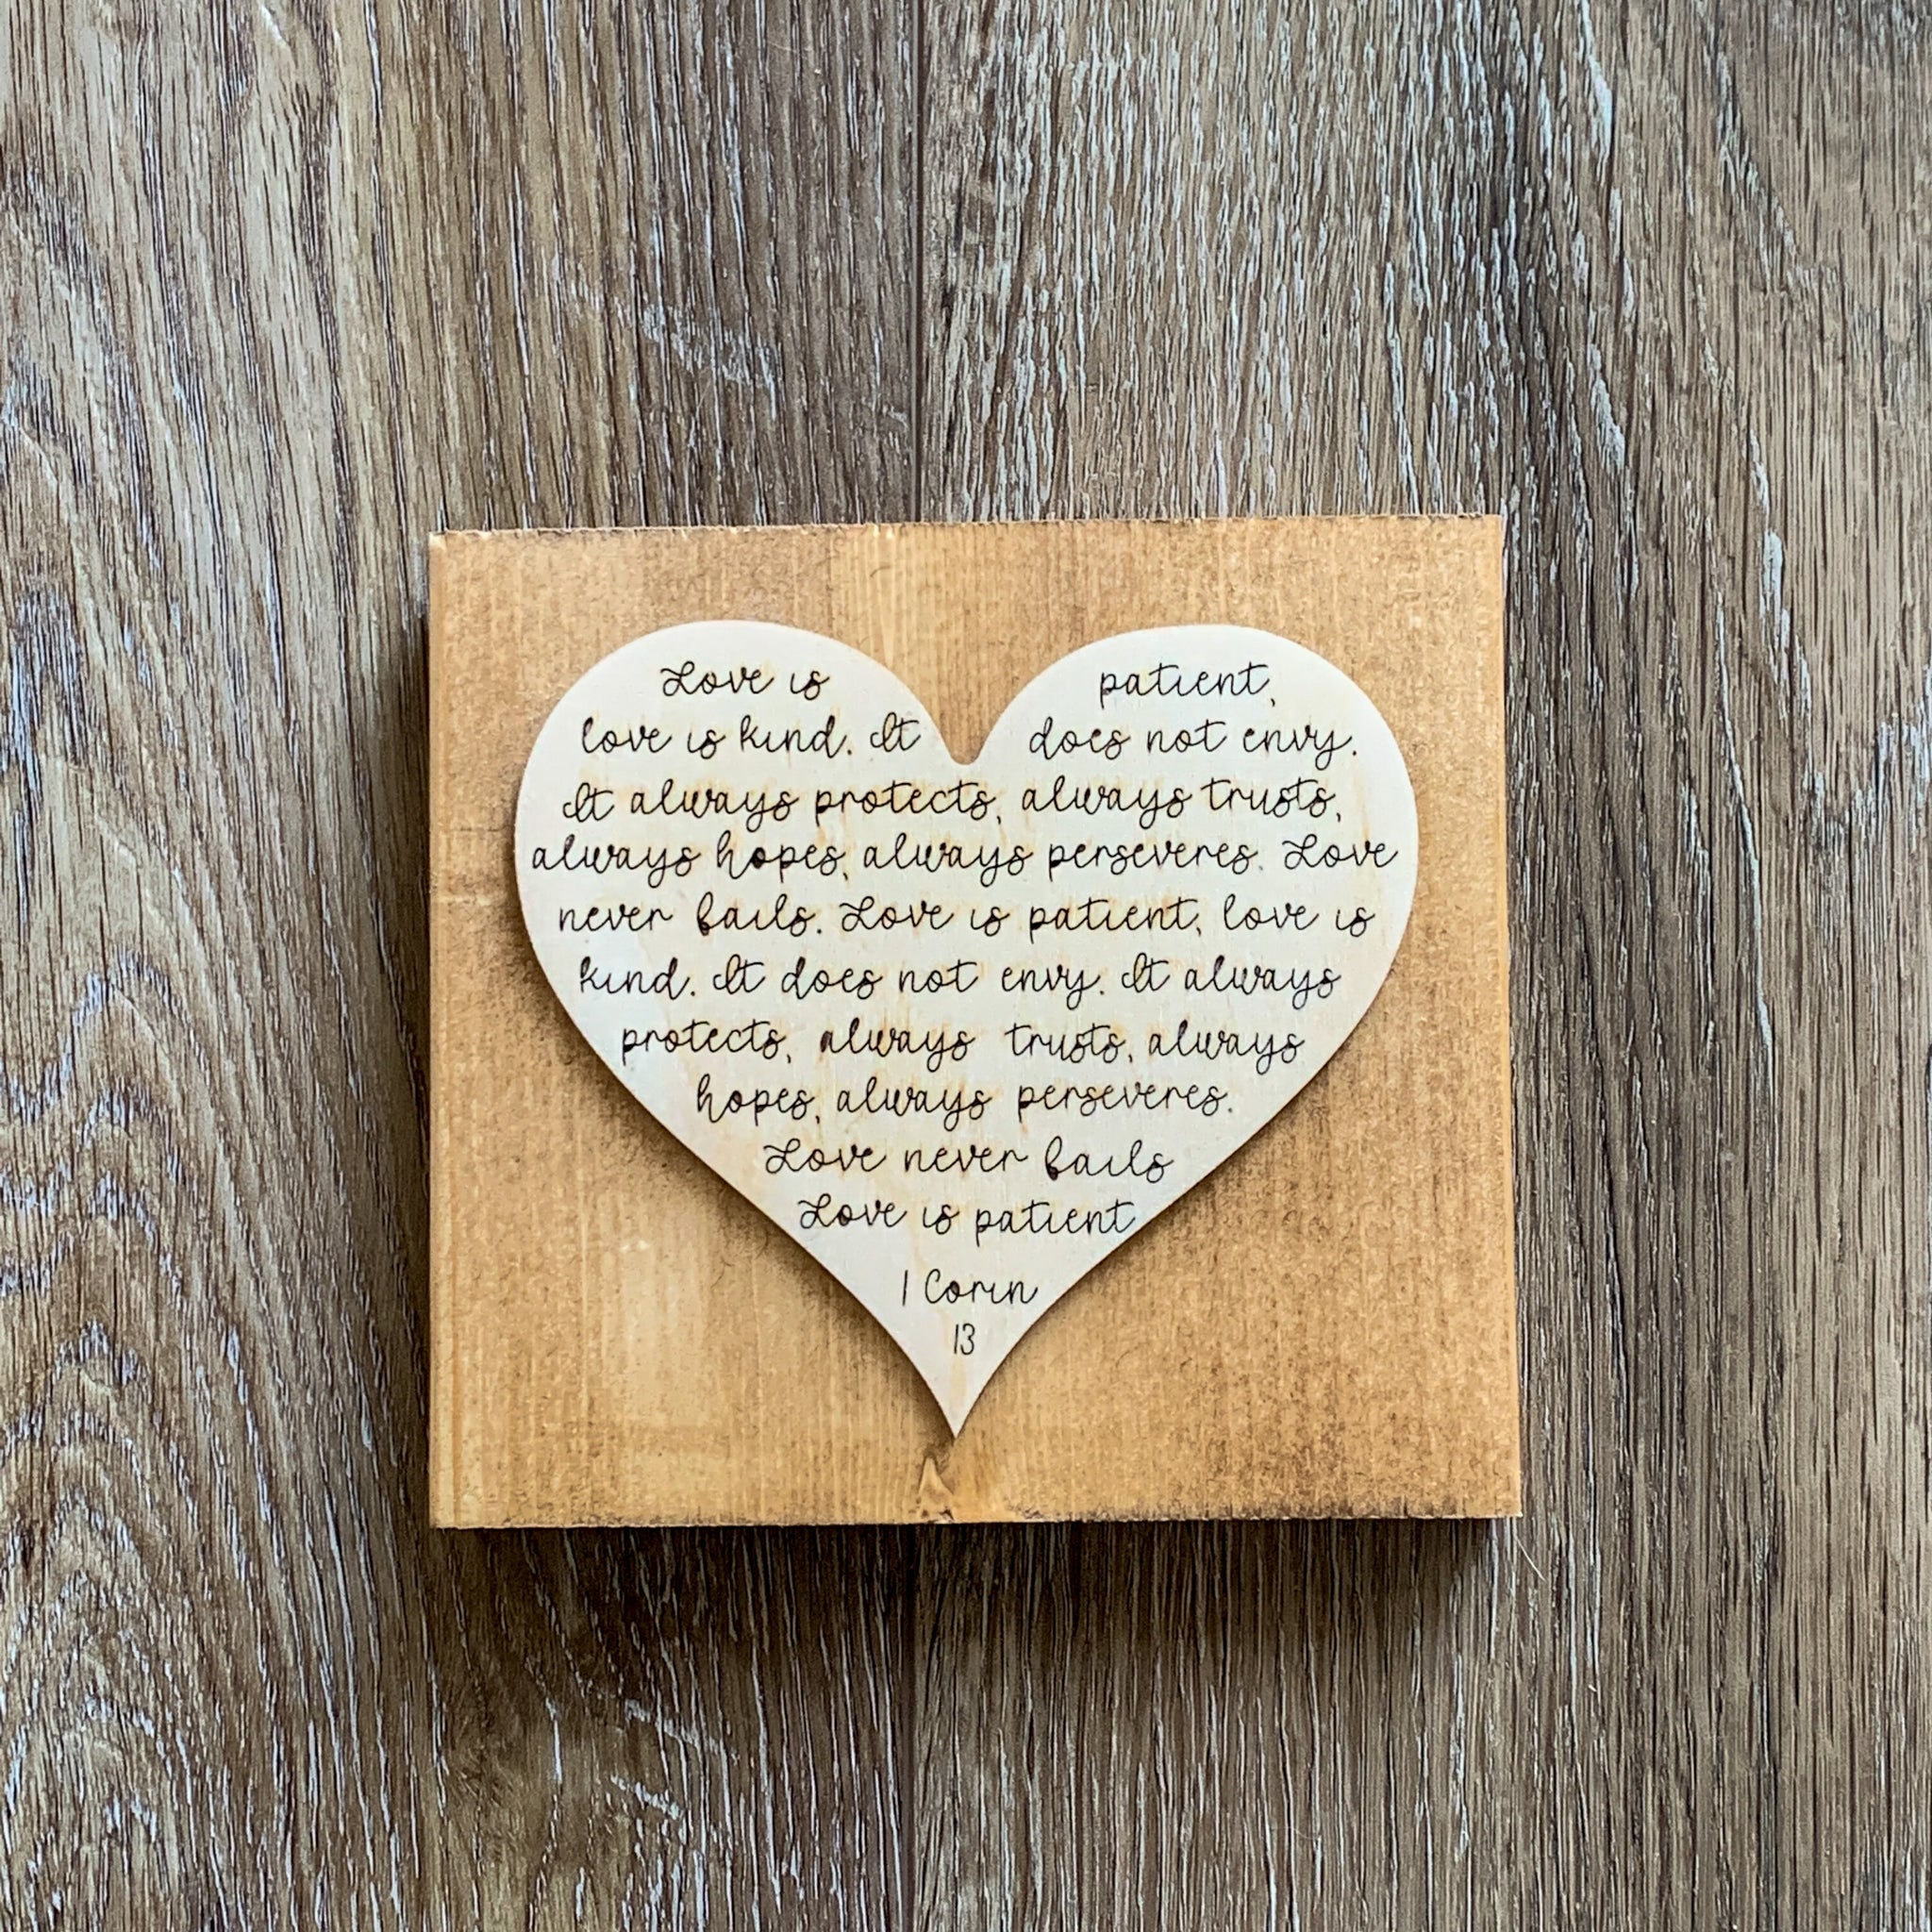 Love is patient,
love is kind. It does not envy.
It always protects, always trusts,
always hopes, always perseveres. Love
never fails. Love is patient, love is
kind. It does not envy. It always
protects, always trusts, always
hopes, always perseveres.
Love never fails
Love is patient
1 Corin
13